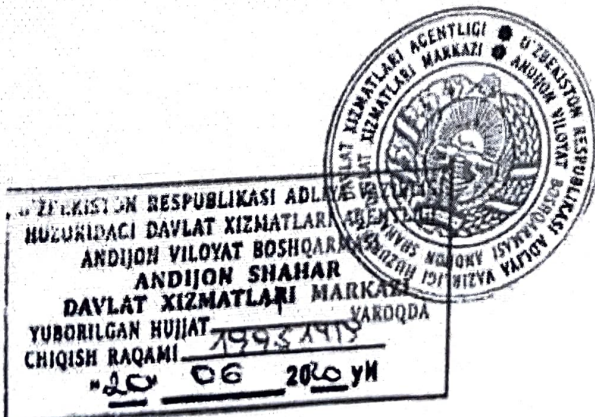 O'ZBEKISTON RESPUBLIKASI ADLIYA VAZIRLIGI HUZURIDAGI DAVLAT XIZMATLARI AGENTLIGI
ANDIJON VILOYAT BOSHQARMASI ANDIJON SHAHAR DAVLAT XIZMATLARI MARKAZI
O'ZBEKISTON RESPUBLIKASI ADLIYA VAZIRLIGI
HUZURIDAGI DAVLAT XIZMATLARI AGENTLIGI
ANDIJON VILOYAT BOSHQARMASI
ANDIJON SHAHAR
DAVLAT XIZMATLARI MARKAZI
YUBORILGAN HUJJAT VAROQDA
CHIQISH RAQAMI
"20" 06 2020 уи